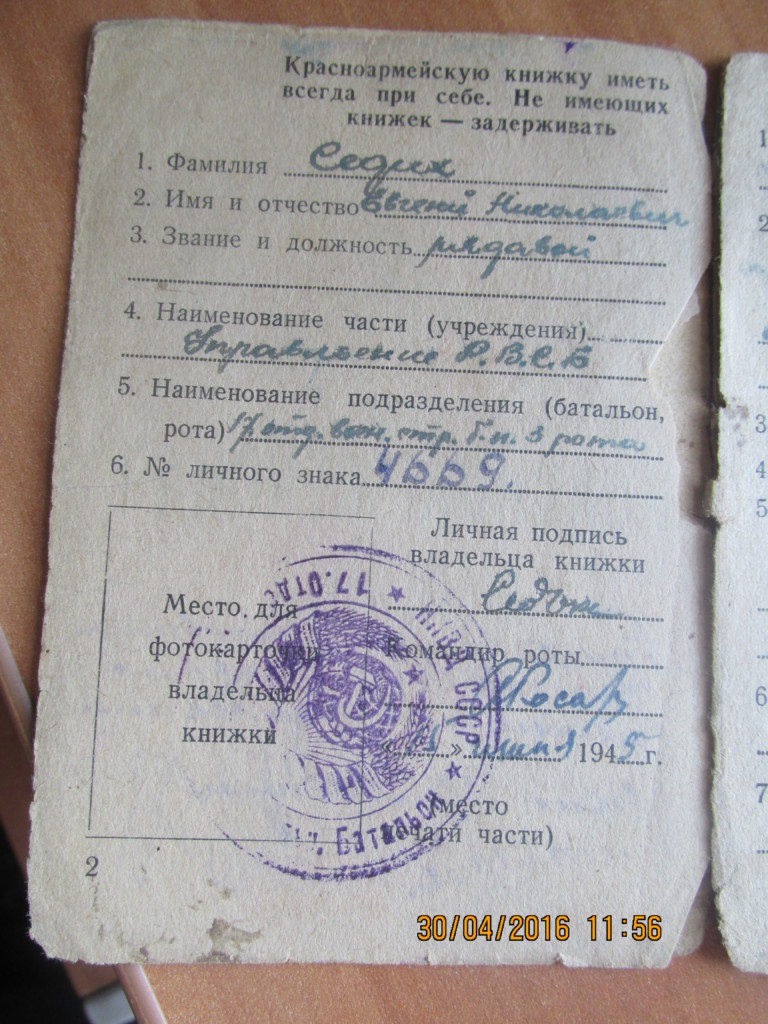 Красноармейскую книжку иметь
всегда при себе. Не имеющих
книжек — задерживать
1. Фамилия Седих
2. Имя и отчество Евгений Николаевич
3. Звание и должность рядавой
4. Наименование части (учреждения)
Управление Р.В.С.Б
5. Наименование подразделения (батальон,
рота) 17 отд. вои. стр. б-н. 3 рота
6. № личного знака 4669.
Личная подпись
владельца книжки
Место для
фотокарточки
владельца
книжки
Командир роты
« » июня 1945 г.
(место
печати части)
17. ОТД
СССР
Батальон
2
30/04/2016 11:56